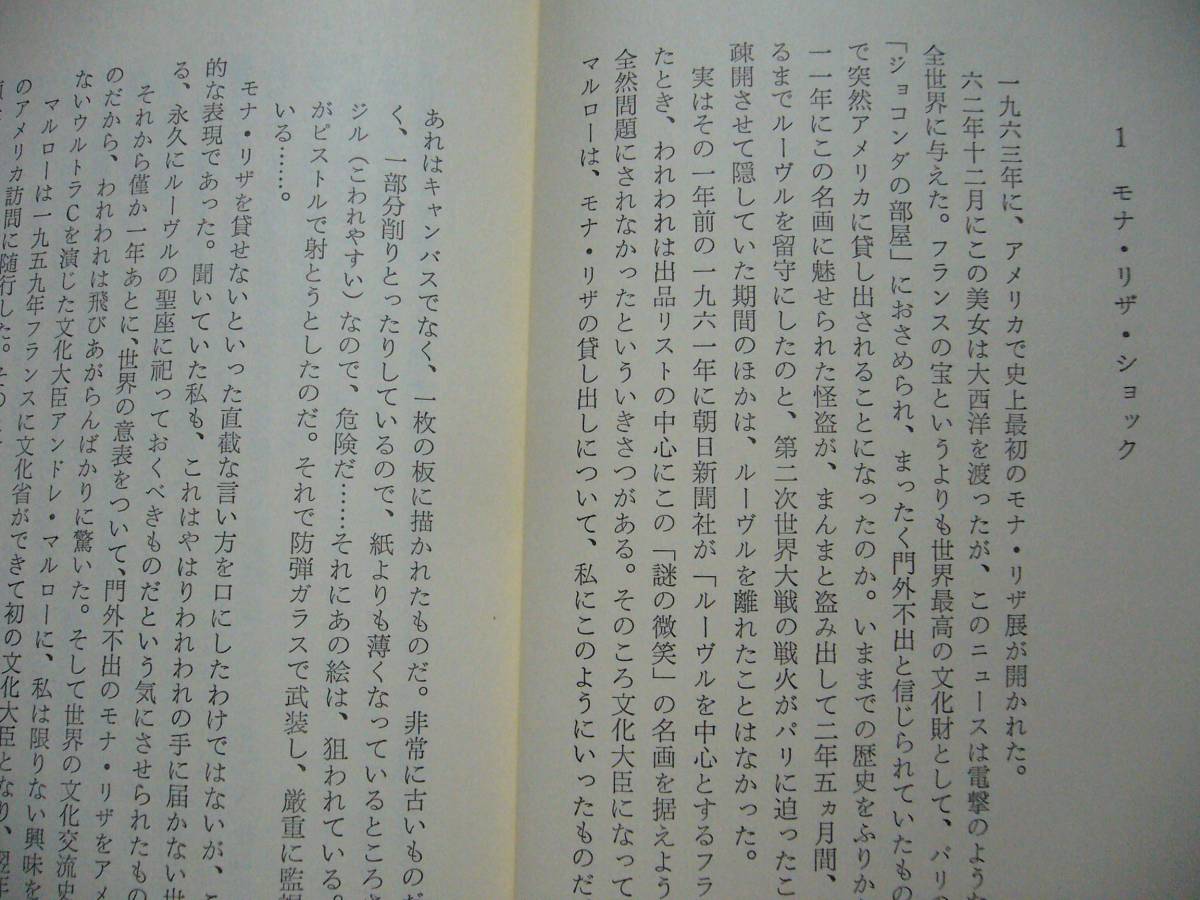 1 モナ・リザ・ショック
一九六三年に、アメリカで史上最初のモナ・リザ展が開かれた。
六二年十二月にこの美女は大西洋を渡ったが、このニュースは電撃のような
全世界に与えた。フランスの宝というよりも世界最高の文化財として、パリの
「ジョコンダの部屋」におさめられ、まったく門外不出と信じられていたもの
で突然アメリカに貸し出されることになったのか。いままでの歴史をふりか
一一年にこの名画に魅せられた怪盗が、まんまと盗み出して二年五ヵ月間、
るまでルーヴルを留守にしたのと、第二次世界大戦の戦火がパリに迫ったこ
疎開させて隠していた期間のほかは、ルーヴルを離れたことはなかった。
実はその一年前の一九六一年に朝日新聞社が「ルーヴルを中心とするフラ
たとき、われわれは出品リストの中心にこの「謎の微笑」の名画を据えよう
全然問題にされなかったといういきさつがある。そのころ文化大臣になって
マルローは、モナ・リザの貸し出しについて、私にこのようにいったものだ
あれはキャンバスでなく、一枚の板に描かれたものだ。非常に古いものだ
く、一部分削りとったりしているので、紙よりも薄くなっているところさ
ジル（こわれやすい）なので、危険だ……それにあの絵は、狙われている。
がピストルで射とうとしたのだ。それで防弾ガラスで武装し、厳重に監視
いる……。
モナ・リザを貸せないといった直截な言い方を口にしたわけではないが、こ
的な表現であった。聞いていた私も、これはやはりわれわれの手に届かない世
る、永久にルーヴルの聖座に祀っておくべきものだという気にさせられたもの
それから僅か一年あとに、世界の意表をついて、門外不出のモナ・リザをアメ
のだから、われわれは飛びあがらんばかりに驚いた。そして世界の文化交流史
ないウルトラCを演じた文化大臣アンドレ・マルローに、私は限りない興味を
マルローは一九五九年フランスに文化省ができて初の文化大臣となり、翌年
のアメリカ訪問に随行した。その